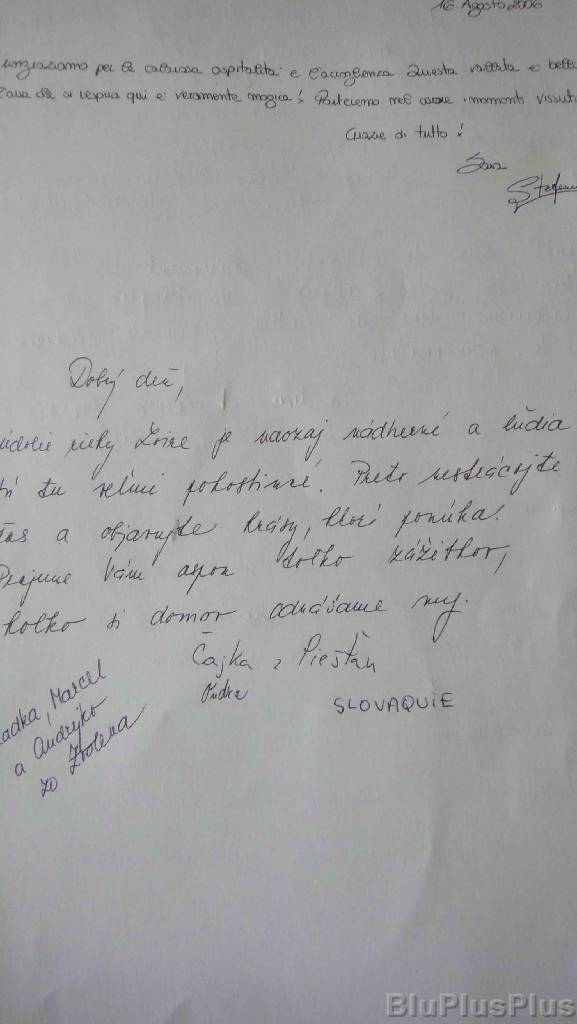 16 Agosto 2006
per la calorosa ospitalità e l'accoglienza. Questa vallata è
che si respira qui è veramente magica! Porteremo nel cuore i momenti
Grazie di tutto!
Sara
Dobrý deň,
údolie rieky je naozaj nádherné a ľudia
sú tu veľmi pohostinní. Preto nestrácajte
čas a objavujte krásy, ktoré ponúka.
Prajeme Vám aspoň toľko zážitkov,
koľko si domov odnášame my.
Čajka z Piešťan
SLOVAQUIE
Marcel
a Andrejko
zo Zvolena
BluPlusPlus